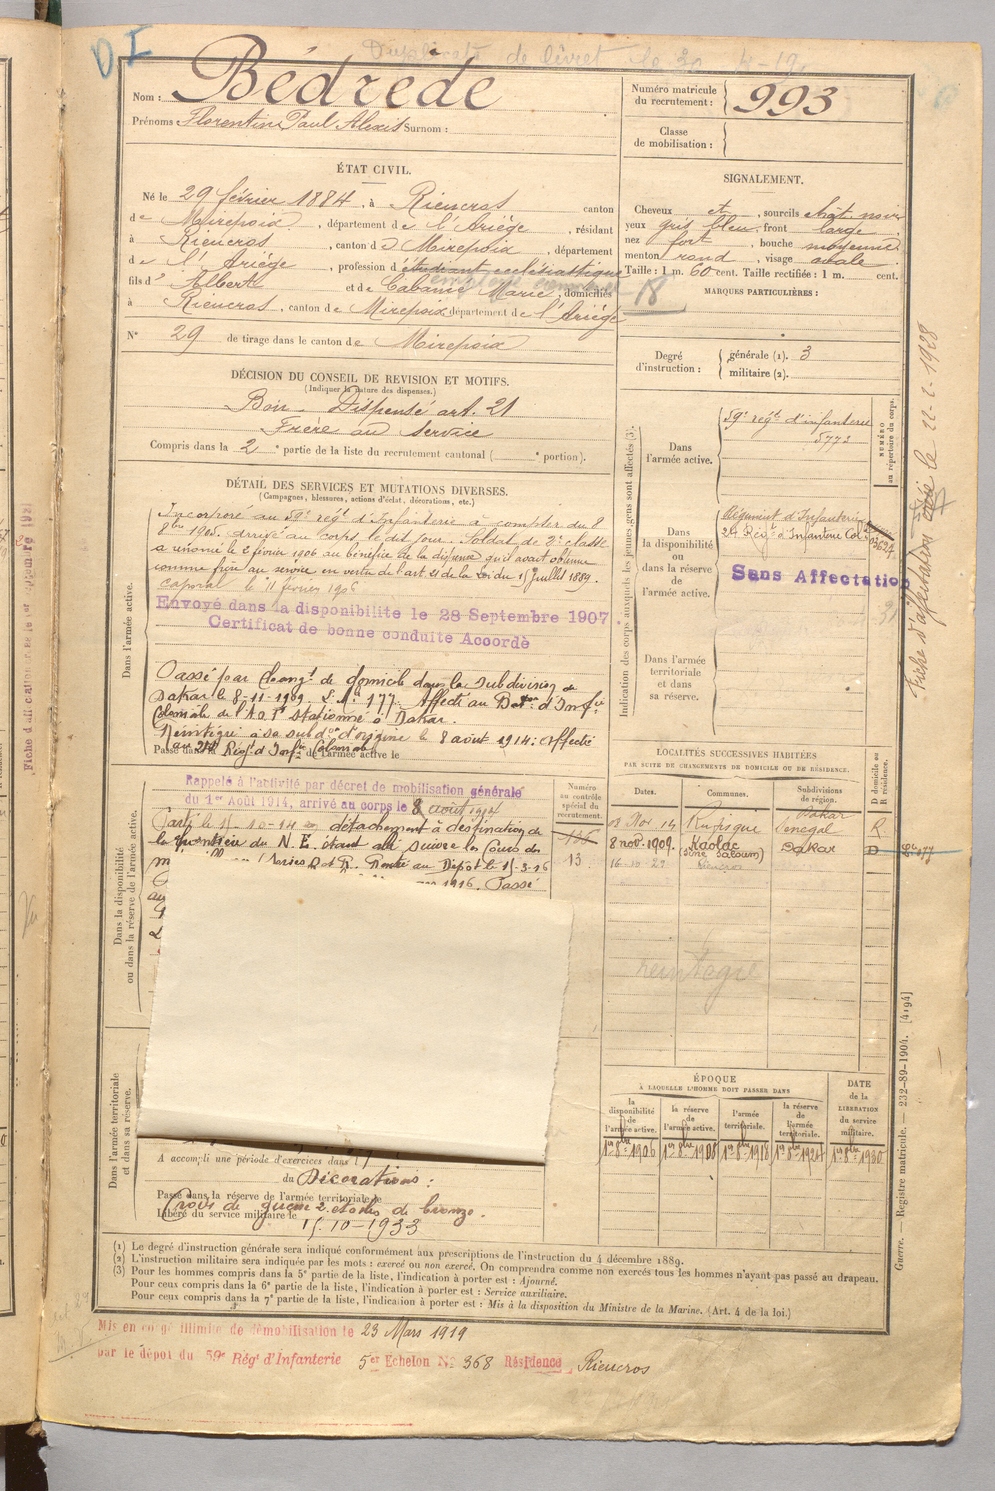 D I
Duplicata de livret le 30
Nom : Bédrède
Prénoms : Florentin Paul Alexis Surnom :
Numéro matricule du recrutement : 993
Classe de mobilisation :
ÉTAT CIVIL.
Né le 29 février 1884, à Rieucros canton
de Mirepoix, département de l'Ariège, résidant
à Rieucros, canton d Mirepoix, département
de l'Ariège, profession d'étudiant ecclésiastique
employé commerce 18
fils d' Albert et de Cabanié Marie, domiciliés
à Rieucros, canton de Mirepoix département de l'Ariège
N° 29 de tirage dans le canton de Mirepoix
SIGNALEMENT.
Cheveux et, sourcils chât noir
yeux gris bleu, front large
nez fort, bouche moyenne
menton rond, visage ovale
Taille : 1 m. 60 cent. Taille rectifiée : 1 m. cent.
MARQUES PARTICULIÈRES :
Degré d'instruction : générale (1). 3
militaire (2).
DÉCISION DU CONSEIL DE REVISION ET MOTIFS.
(Indiquer la nature des dispenses.)
Bon. Dispensé art. 21
Frère au service
Compris dans la 2e partie de la liste du recrutement cantonal ( e portion).
DÉTAIL DES SERVICES ET MUTATIONS DIVERSES.
(Campagnes, blessures, actions d'éclat, décorations, etc.)
Dans l'armée active.
Incorporé au 59e régt d'Infanterie à compter du 8
8bre 1905. arrivé au corps le dit jour. Soldat de 2e classe
a renoncé le 2 février 1906 au bénéfice de la dispense qu'il avait obtenue
comme frère au service en vertu de l'art 21 de la loi du 15 Juillet 1889.
caporal le 11 février 1906
Envoyé dans la disponibilité le 28 Septembre 1907
Certificat de bonne conduite Accordé
Passé par changt de domicile dans la Subdivision de
Dakar le 8-11-1909 177. Affecté au Bon d'Infie
Coloniale de l'A.O.F. stationné à Dakar.
Réintégré à sa subdon d'origine le 8 août 1914 : affecté
au 24e Régt d'Infie Coloniale
Passé dans la réserve de l'armée active le
Indication des corps auxquels les jeunes gens sont affectés (3).
Dans l'armée active.
59e régt d'infanterie
5772
NUMÉRO au répertoire du corps.
Dans la disponibilité ou dans la réserve de l'armée active.
Régiment d'Infanterie
24 Régt d'Infanterie Cole
Sans Affectation
Dans l'armée territoriale et dans sa réserve.
Fiche d'affectation le 22-2-1928
Dans la disponibilité ou dans la réserve de l'armée active.
Rappelé à l'activité par décret de mobilisation générale
du 1er Août 1914, arrivé au corps le 8 août 1914
Parti le 15-10-14 en détachement à destination de
la frontière du N.E. étant allé suivre les Cours de
D et R. Rentré au Dépôt le 15-3-16
1916. Passé
Numéro au contrôle spécial du recrutement.
13
LOCALITÉS SUCCESSIVES HABITÉES
PAR SUITE DE CHANGEMENTS DE DOMICILE OU DE RÉSIDENCE.
Dates. Communes. Subdivisions de région. D domicile ou R résidence.
03 Nov 14 Rufisque Dakar Sénégal R
8 nov. 1909. Kaolac (Sine Saloum) Dakar D
réintégré
Dans l'armée territoriale et dans sa réserve.
A accompli une période d'exercices dans
du
Décorations :
Passé dans la réserve de l'armée territoriale le
Croix de guerre 2 étoiles de bronze.
Libéré du service militaire le
15-10-1933
ÉPOQUE
À LAQUELLE L'HOMME DOIT PASSER DANS
la disponibilité de l'armée active. la réserve de l'armée active. l'armée territoriale. la réserve de l'armée territoriale. DATE de la LIBÉRATION du service militaire.
1er 8bre 1906 1er 8bre 1908 1er 8bre 1918 1er 8bre 1924 1er 8bre 1930
Guerre. Registre matricule. — 232-89-1904. [4194]
(1) Le degré d'instruction générale sera indiqué conformément aux prescriptions de l'instruction du 4 décembre 1889.
(2) L'instruction militaire sera indiquée par les mots : exercé ou non exercé. On comprendra comme non exercés tous les hommes n'ayant pas passé au drapeau.
(3) Pour les hommes compris dans la 5e partie de la liste, l'indication à porter est : Ajourné.
Pour ceux compris dans la 6e partie de la liste, l'indication à porter est : Service auxiliaire.
Pour ceux compris dans la 7e partie de la liste, l'indication à porter est : Mis à la disposition du Ministre de la Marine. (Art. 4 de la loi.)
Mis en congé illimité de démobilisation le 23 Mars 1919
par le dépot du 59e Régt d'Infanterie 5er Echelon No 368 Résidence Rieucros